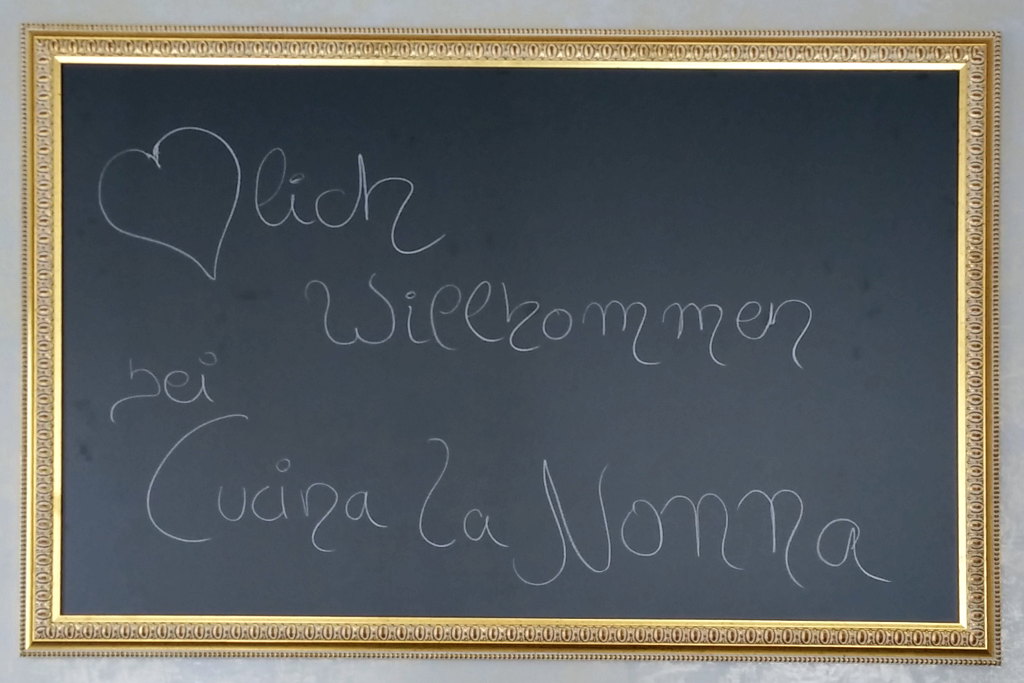 ♥lich
Willkommen
bei
Cucina La Nonna